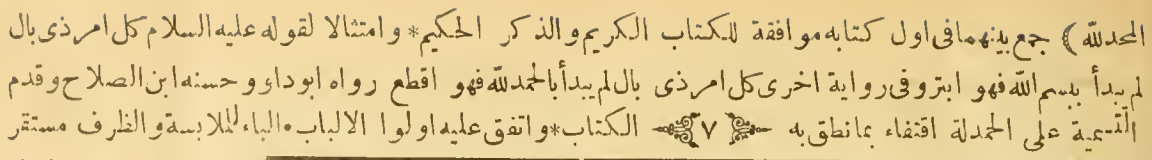 الحمدلله ) جمع بينهما فى اول كتابه موافقة للكتاب الكريم والذكر الحكيم* وامتثالا لقوله عليه السلام كل امر ذى بال
لم يبدأ ببسم الله فهو ابتر وفى رواية اخرى كل امر ذى بال لم يبدأ بالحمدلله فهو اقطع رواه ابوداود وحسنه ابن الصلاح وقدم
التسمية على الحمدلة اقتفاء بما نطق به ﴿ ٧ ﴾ الكتاب* واتفق عليه اولوا الالباب • الباء للملابسة والظرف مستقر